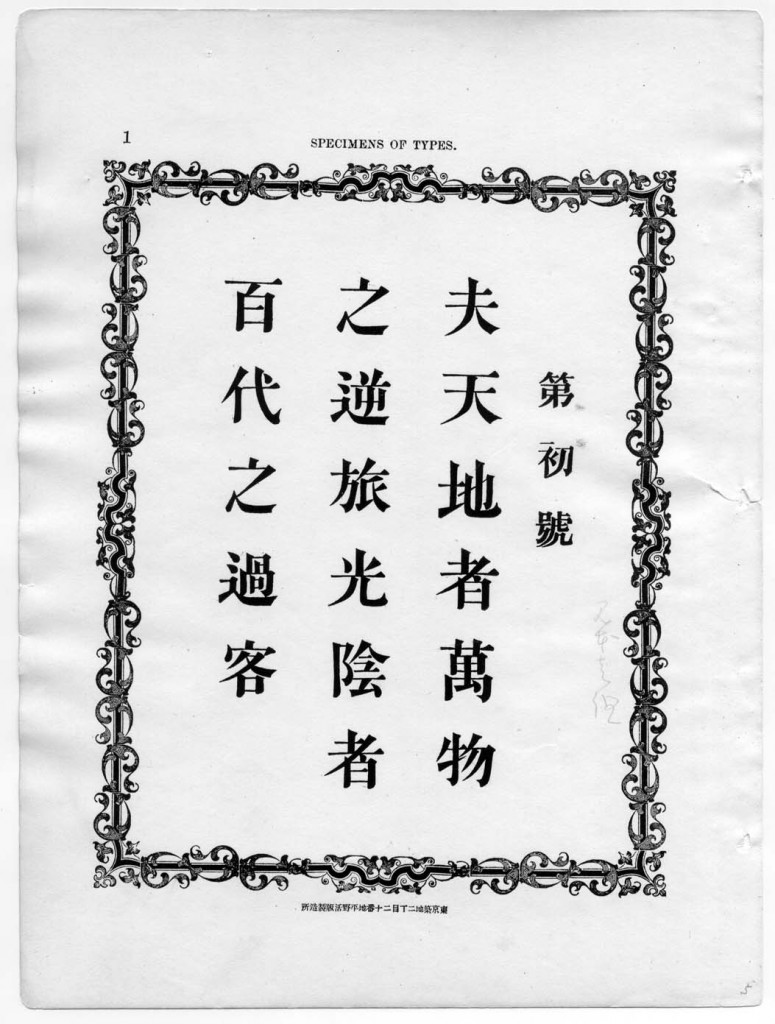 1
SPECIMENS OF TYPES.
第初號
夫天地者萬物
之逆旅光陰者
百代之過客
東京築地二丁目二十番地平野活版製造所
5